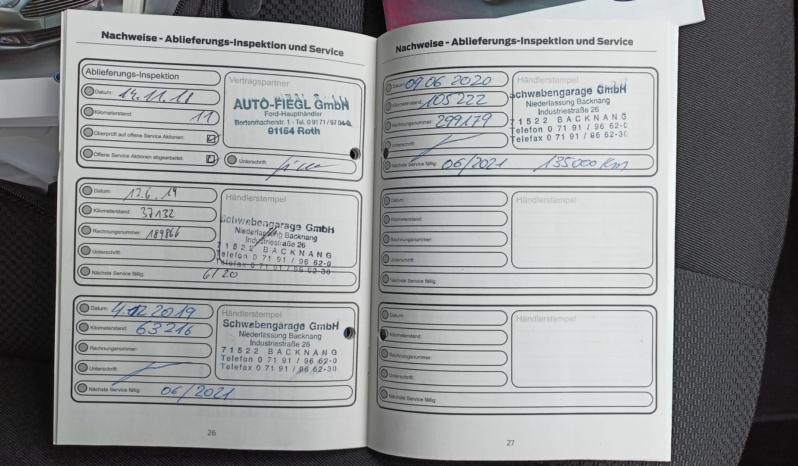 Nachweise - Ablieferungs-Inspektion und Service
Ablieferungs-Inspektion
Datum: 14.11.18
Kilometerstand: 11
Überprüft auf offene Service Aktionen:
Offene Service Aktionen abgearbeitet:
Vertragspartner
AUTO-FIEGL GmbH
Ford-Haupthändler
91154 Roth
Unterschrift:
Datum: 13.6.19
Kilometerstand: 37132
Rechnungsnummer: 189866
Unterschrift:
Nächste Service fällig: 6/20
Händlerstempel
Schwabengarage GmbH
Niederlassung Backnang
Industriestraße 26
71522 BACKNANG
Telefon 0 71 91 / 96 62-0
Telefax 0 71 91 / 96 62-30
Datum: 4.12.2019
Kilometerstand: 63216
Rechnungsnummer:
Unterschrift:
Nächste Service fällig: 06/2021
Händlerstempel
Schwabengarage GmbH
Niederlassung Backnang
Industriestraße 26
71522 BACKNANG
Telefon 0 71 91 / 96 62-0
Telefax 0 71 91 / 96 62-30
26
Nachweise - Ablieferungs-Inspektion und Service
Datum: 09.06.2020
Kilometerstand: 105222
Rechnungsnummer: 299179
Unterschrift:
Nächste Service fällig: 06/2021 135000 km
Händlerstempel
Schwabengarage GmbH
Niederlassung Backnang
Industriestraße 26
71522 BACKNANG
Telefon 0 71 91 / 96 62-0
Telefax 0 71 91 / 96 62-30
Datum:
Kilometerstand:
Rechnungsnummer:
Unterschrift:
Nächste Service fällig:
Händlerstempel
Datum:
Kilometerstand:
Rechnungsnummer:
Unterschrift:
Nächste Service fällig:
Händlerstempel
27